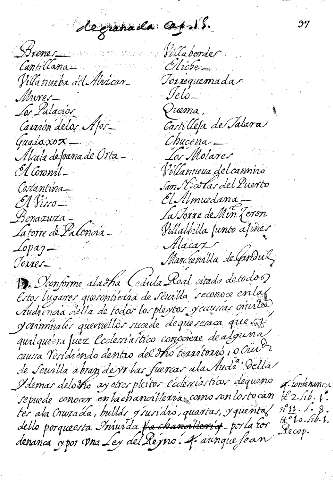 de granada. Cap. 15.
37
Brenes
Cantillana
Villanueba del
Mures
Los Palacios
de los Ajos
Guadajox
Alcala de Juana de Orta
El Coronil
Costantina
El Visso
Benazuza
La torre de Palencia
Lopaz
Torres
Villabordes
Eliche
Torrequemadas
Gelo
Quema
Castilleja de Talara
Chucena
Los Molares
Villanueva del camino
San Nicolas del Puerto
El Almuedana
La Torre de Min Zeron
Villalbilla junto a
Alacaz
Manchenilla de
Conforme a la dha Cedula Real citada de todos
estos lugares que son tierra de Sevilla se conoce en la
Audiencia della de todos los pleytos y causas civiles
y criminales que en ellos sucede de que se saca que
qualquiera Juez Ecclesiastico conociere de alguna
causa dentro del dho territorio, o Ciudad
de Sevilla abran de yr las fuerzas a la Audª della
y demas de lo dho ay otros pleitos Ecclesiasticos de que no
se puede conocer en la chancilleria como son los tocan
tes a la Cruzada, bullas y susidio, quartas, y quenta
dello porque esta Inivida la chancilleria por la or
denanca y por una Ley del Reyno. aunque sean
lib. 1.
lib. 1.
Recop.